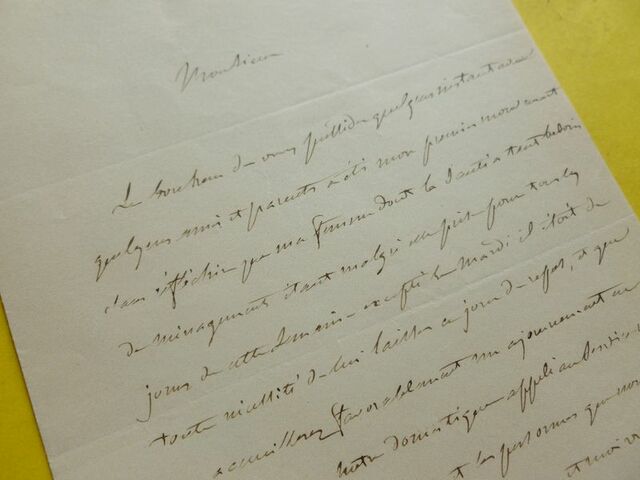 Monsieur
Le bonheur de vous posséder quelques instants avec
quelques amis et parents a été mon premier mouvement
sans réfléchir que ma femme dont la santé a tant besoin
de ménagements étant malgré elle prise pour tous les
jours de cette semaine excepté le mardi il était de
toute nécessité de lui laisser ce jour de repos, et que
accueillerez favorablement un ajournement au
notre domestique appelé au
et les personnes que nous
et moi